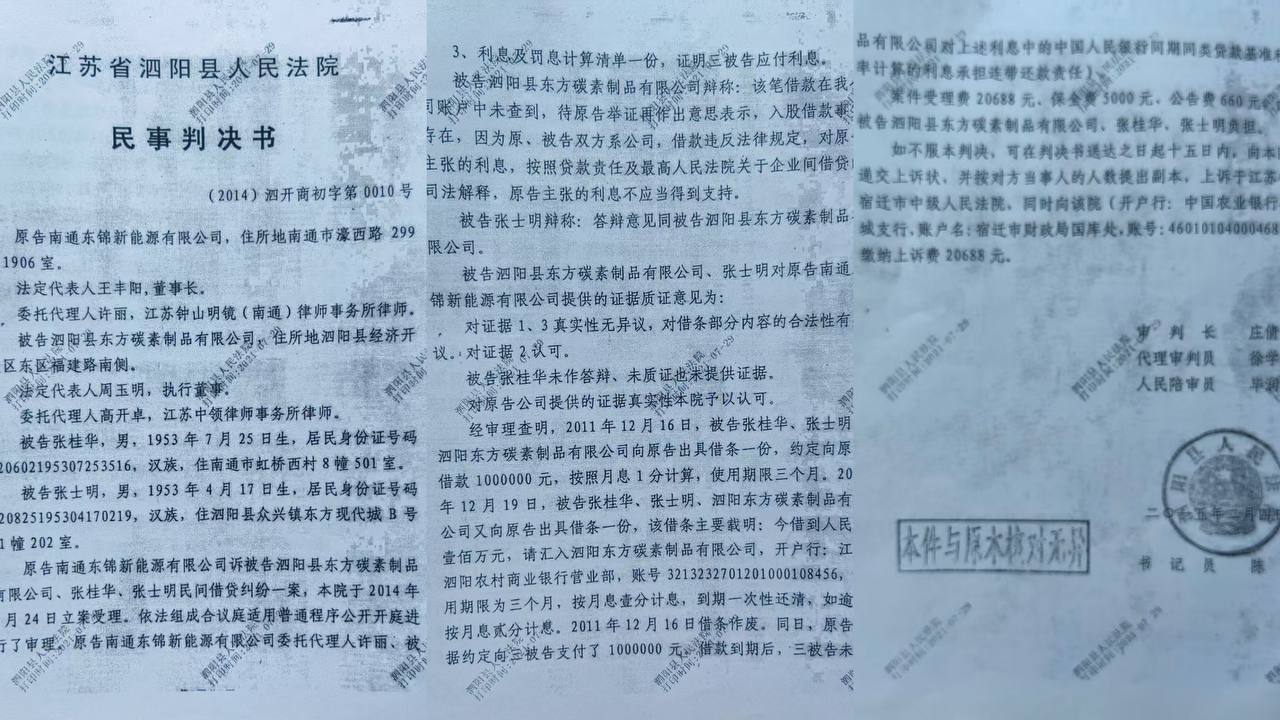 江苏省泗阳县人民法院
民事判决书
(2014) 泗开商初字第 0010 号
原告南通东锦新能源有限公司，住所地南通市濠西路 299
1906 室。
法定代表人王丰阳,董事长。
委托代理人许丽，江苏钟山明镜（南通）律师事务所律师。
被告泗阳县东方碳素制品有限公司，住所地泗阳县经济开
区东区福建路南侧。
法定代表人周玉明，执行董事。
委托代理人高开卓，江苏中领律师事务所律师。
被告张桂华，男，1953 年 7 月 25 日生，居民身份证号码
20602195307253516，汉族，住南通市虹桥西村 8 幢 501 室。
被告张士明，男，1953 年 4 月 17 日生，居民身份证号码
20825195304170219，汉族，住泗阳县众兴镇东方现代城 B 号
1 幢 202 室。
原告南通东锦新能源有限公司诉被告泗阳县东方碳素制品
有限公司、张桂华、张士明民间借贷纠纷一案，本院于 2014 年
月 24 日立案受理。依法组成合议庭适用普通程序公开开庭进
行了审理。原告南通东锦新能源有限公司委托代理人许丽、被
3、利息及罚息计算清单一份，证明三被告应付利息。
被告泗阳县东方碳素制品有限公司辩称：该笔借款在我公
司账户中未查到，待原告举证再作出意思表示，入股借款事
存在，因为原、被告双方系公司，借款违反法律规定，对原
主张的利息，按照贷款责任及最高人民法院关于企业间借贷
司法解释，原告主张的利息不应当得到支持。
被告张士明辩称：答辩意见同被告泗阳县东方碳素制品
限公司。
被告泗阳县东方碳素制品有限公司、张士明对原告南通
锦新能源有限公司提供的证据质证意见为：
对证据 1、3 真实性无异议，对借条部分内容的合法性有
议。对证据 2 认可。
被告张桂华未作答辩、未质证也未提供证据。
对原告公司提供的证据真实性本院予以认可。
经审理查明，2011 年 12 月 16 日，被告张桂华、张士明、
泗阳东方碳素制品有限公司向原告出具借条一份，约定向原
借款 1000000 元，按照月息 1 分计算，使用期限三个月。20
年 12 月 19 日，被告张桂华、张士明、泗阳东方碳素制品有
公司又向原告出具借条一份，该借条主要载明：今借到人民
壹佰万元，请汇入泗阳东方碳素制品有限公司，开户行：江
泗阳农村商业银行营业部，账号 3213232701201000108456，
用期限为三个月，按月息壹分计息，到期一次性还清，如逾
按月息贰分计息。2011 年 12 月 16 日借条作废。同日，原告
据约定向三被告支付了 1000000 元。借款到期后，三被告未
品有限公司对上述利息中的中国人民银行同期同类贷款基准利
率计算的利息承担连带还款责任）。
案件受理费 20688 元、保全费 5000 元、公告费 660 元
被告泗阳县东方碳素制品有限公司、张桂华、张士明负担。
如不服本判决，可在判决书送达之日起十五日内，向本
递交上诉状，并按对方当事人的人数提出副本，上诉于江苏
宿迁市中级人民法院，同时向该院（开户行：中国农业银行
城支行，账户名：宿迁市财政局国库处，账号：46010104000468
缴纳上诉费 20688 元。
审 判 长 庄倩
代理审判员 徐学
人民陪审员 毕润
阳县人民法
二〇一五年 月四
本件与原本核对无异
书 记 员 陈
泗阳县人民法院
打印时间:2021-07-29